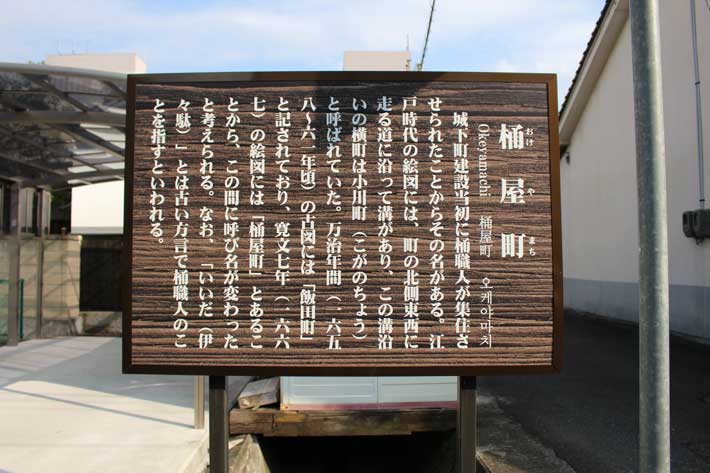 桶屋町
おけ や まち
Okeyamachi 桶屋町 오케야마치
城下町建設当初に桶職人が集住さ
せられたことからその名がある。江
戸時代の絵図には、町の北側東西に
走る道に沿って溝があり、この溝沿
いの横町は小川町（こがのちょう）
と呼ばれていた。万治年間（一六五
八〜六一年頃）の古図には「飯田町」
と記されており、寛文七年（一六六
七）の絵図には「桶屋町」とあるこ
とから、この間に呼び名が変わった
と考えられる。なお、「いいだ（伊
々駄）」とは古い方言で桶職人のこ
とを指すといわれる。